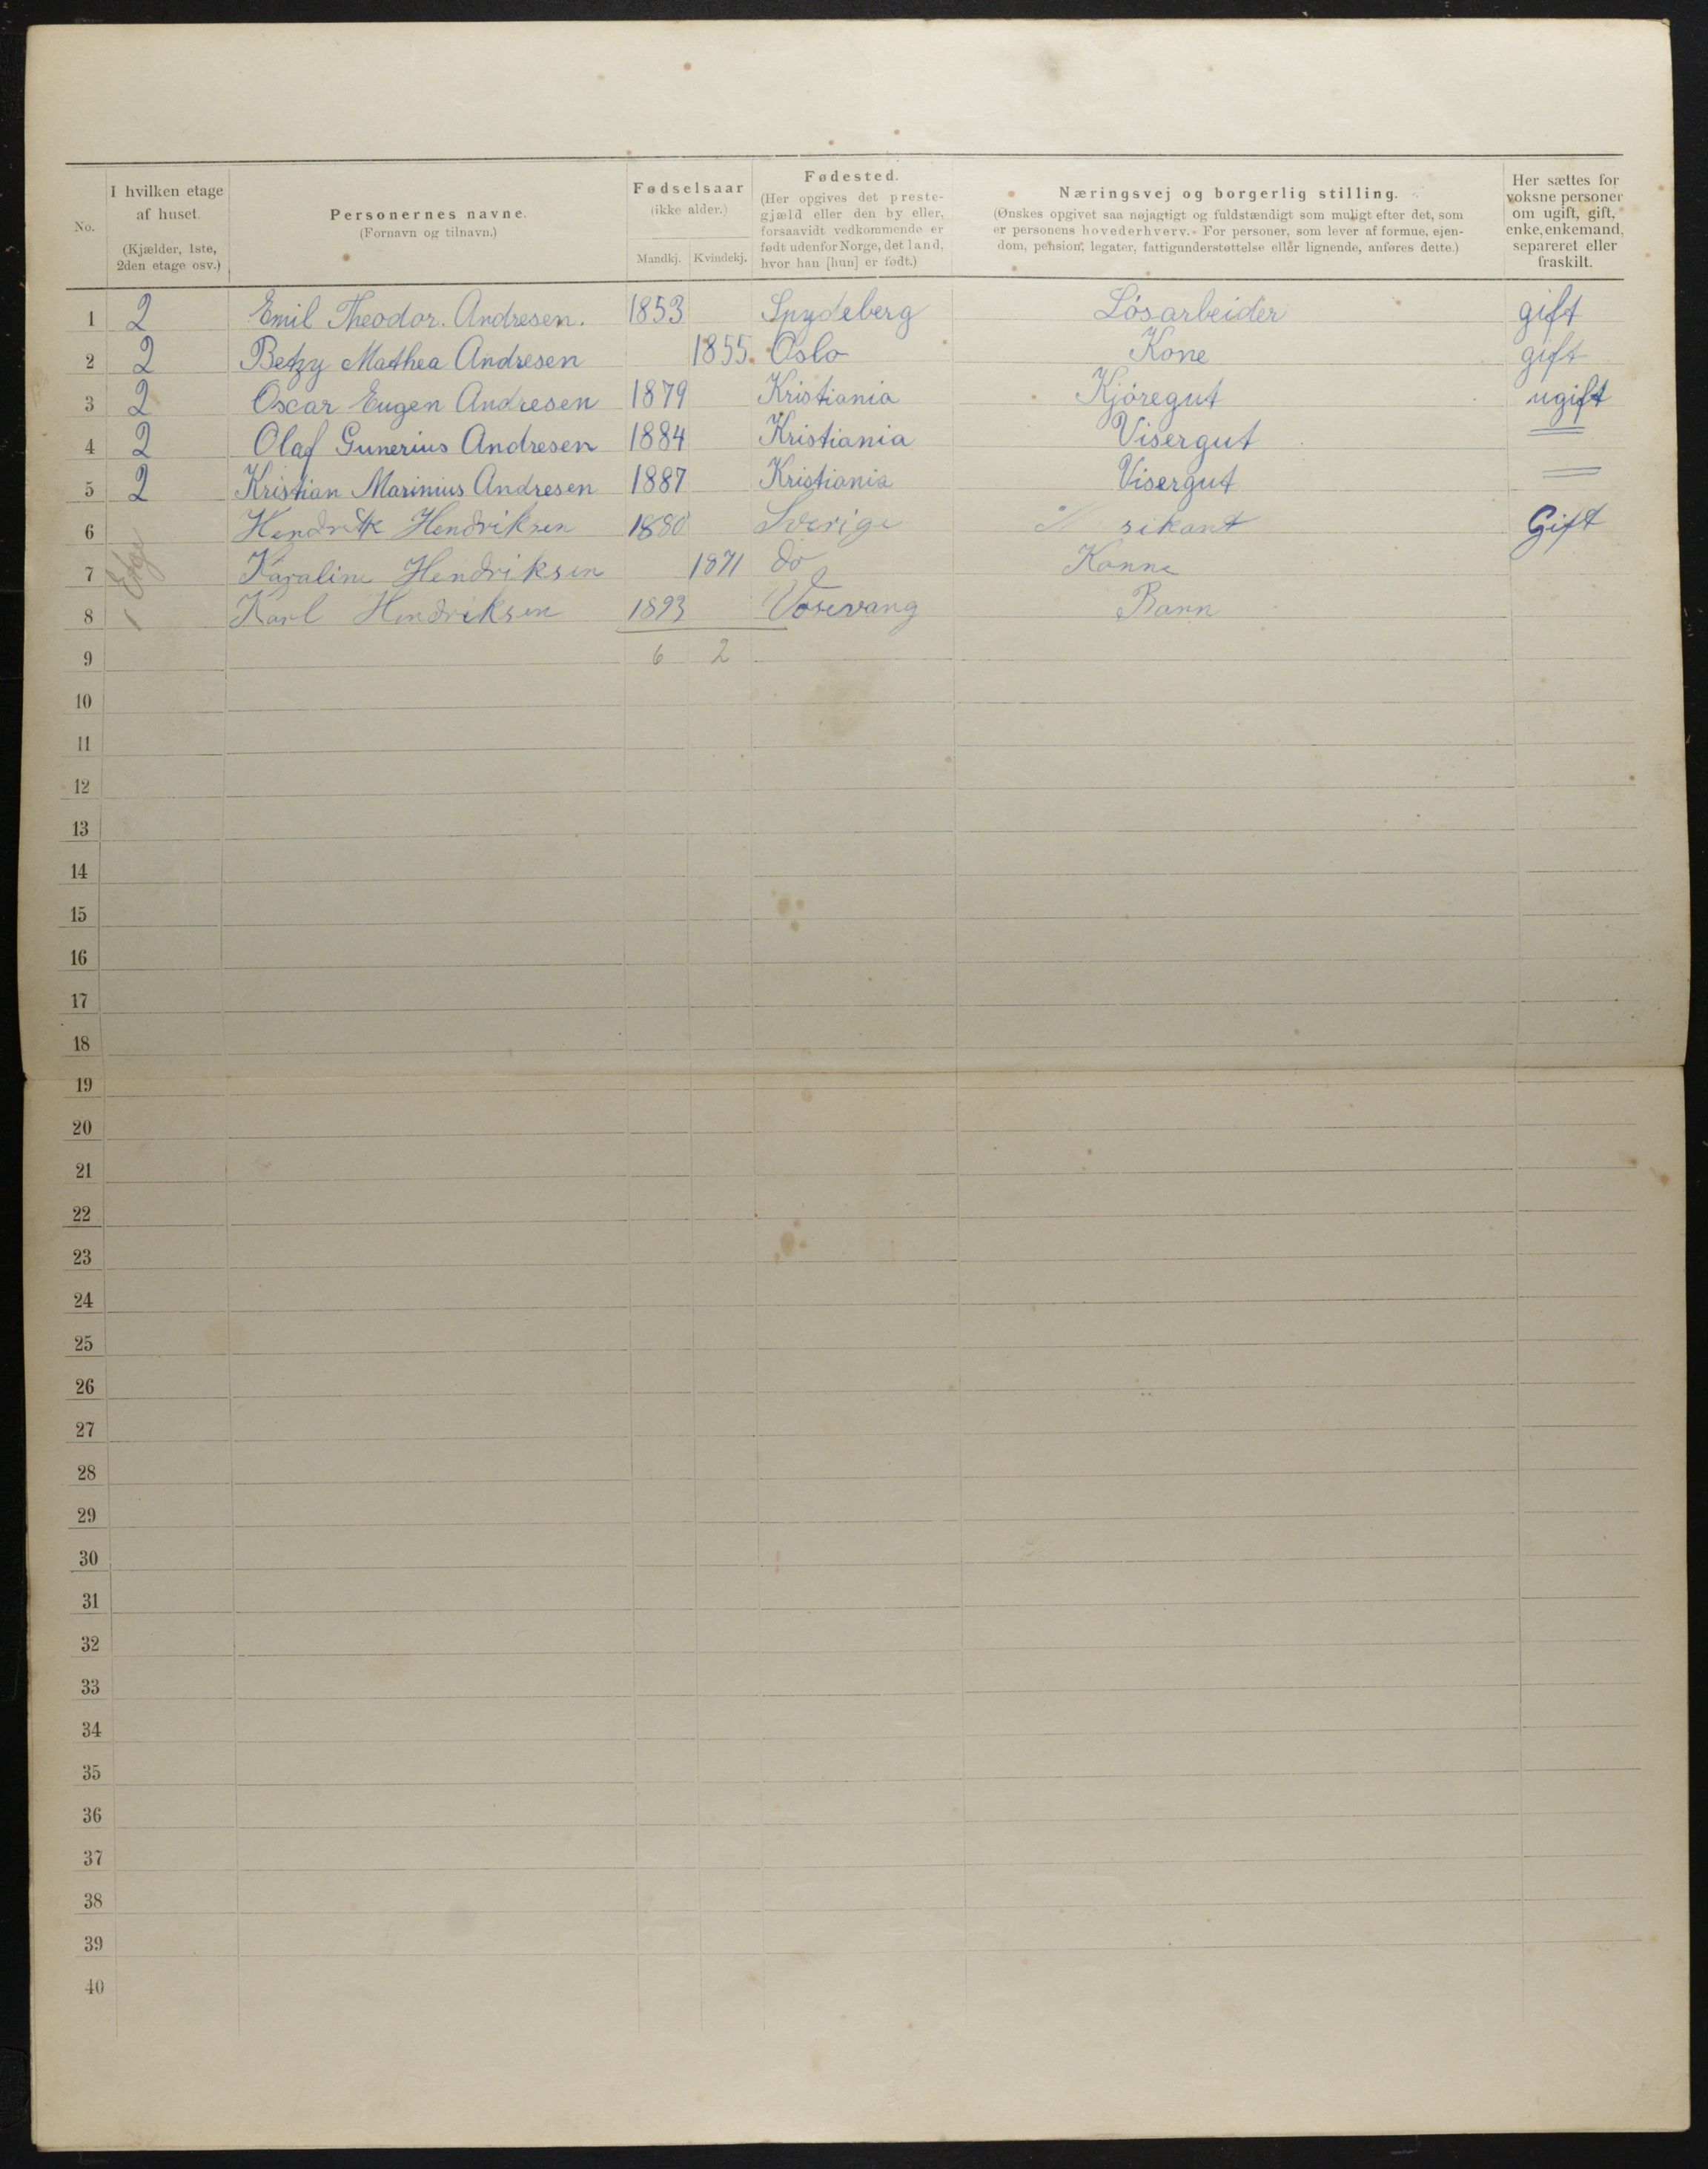 No.
I hvilken etage
af huset.
(Kjælder, 1ste,
2den etage osv.)
Personernes navne.
(Fornavn og tilnavn.)
Fødselsaar
(ikke alder.)
Mandkj. Kvindekj.
Fødested.
(Her opgives det preste-
gjæld eller den by eller,
forsaavidt vedkommende er
født udenfor Norge, det land,
hvor han [hun] er født.)
Næringsvej og borgerlig stilling.
(Ønskes opgivet saa nøjagtigt og fuldstændigt som muligt efter det, som
er personens hovederhverv. For personer, som lever af formue, ejen-
dom, pension, legater, fattigunderstøttelse eller lignende, anføres dette.)
Her sættes for
voksne personer
om ugift, gift,
enke, enkemand,
separeret eller
fraskilt.
1 2 Emil Theodor. Andresen. 1853 Spydeberg Løsarbeider gift
2 2 Betzy Mathea Andresen 1855. Oslo Kone gift
3 2 Oscar Eugen Andresen 1879 Kristiania Kjøregut ugift
4 2 Olaf Gunerius Andresen 1884 Kristiania Visergut =
5 2 Kristian Marinius Andresen 1887 Kristiania Visergut =
6 Hendrik Hendriksen Sverige Gift
7 1 Etge Karaline Hendriksen 1871 do Konne
8 Karl Hendriksen 1893 Vosevang Barn
9 6 2
10
11
12
13
14
15
16
17
18
19
20
21
22
23
24
25
26
27
28
29
30
31
32
33
34
35
36
37
38
39
40